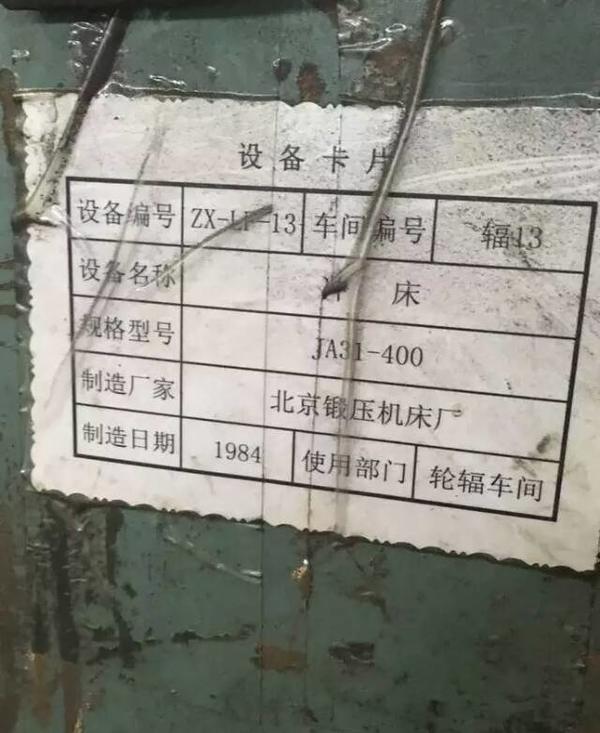 设备卡片
设备编号 ZX-LF-13 车间编号 辐13
设备名称 床
规格型号 JA31-400
制造厂家 北京锻压机床厂
制造日期 1984 使用部门 轮辐车间